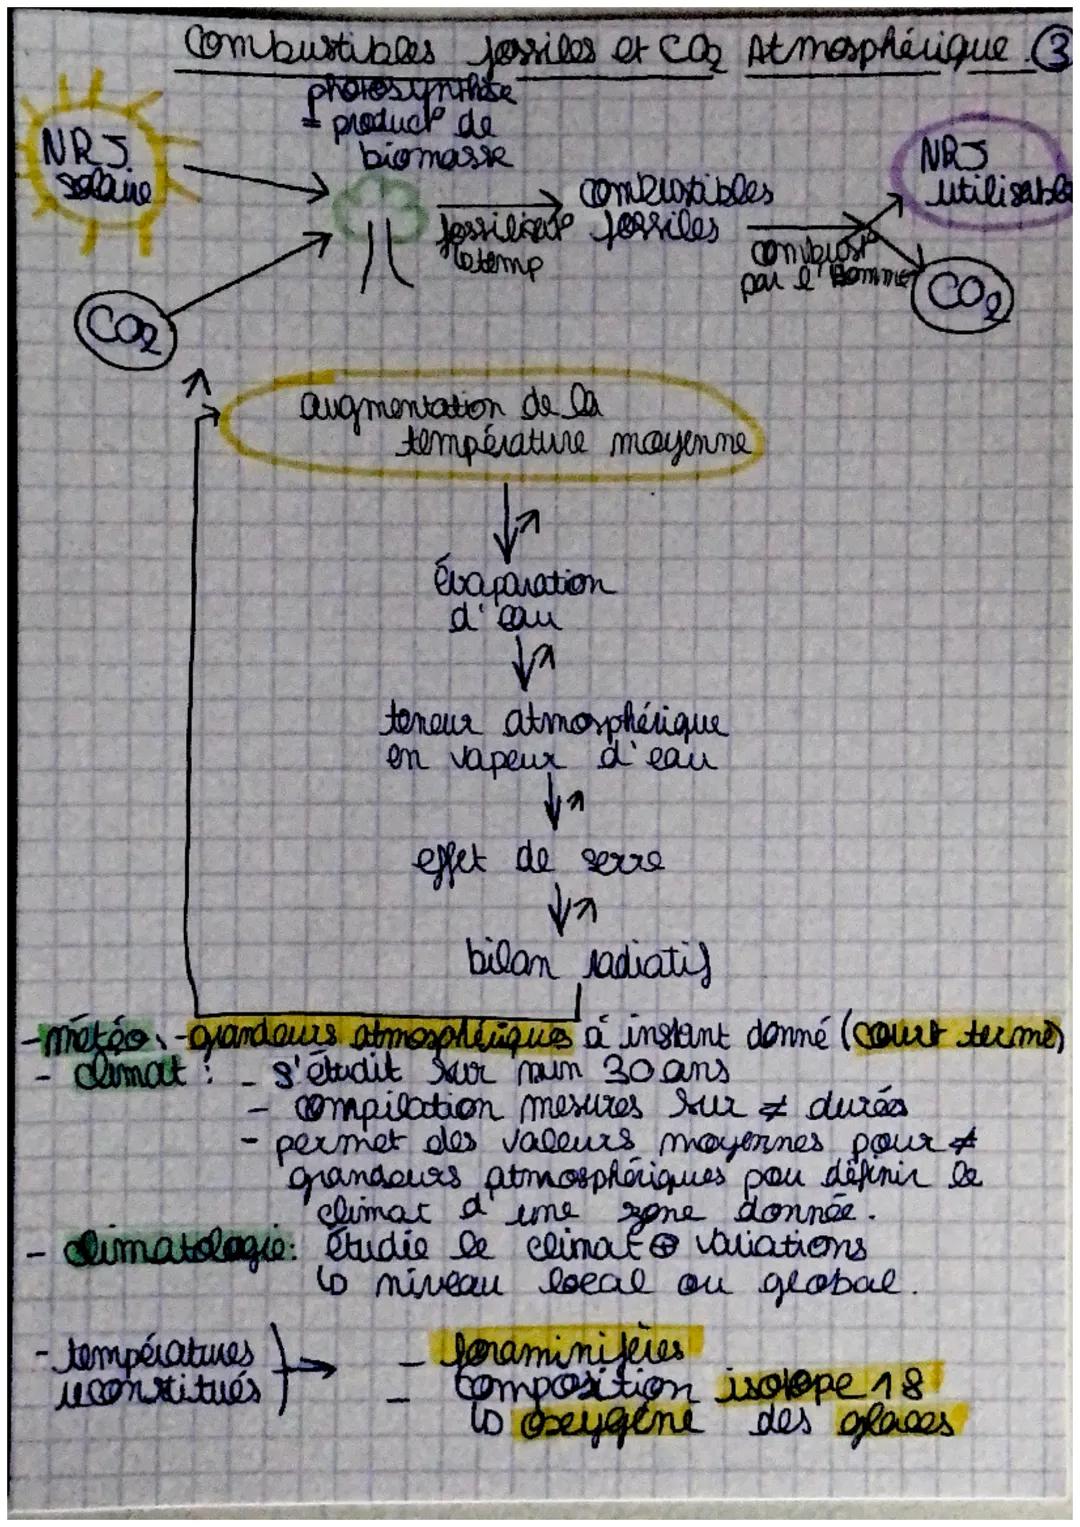 Combustibles fossiles et CO2 Atmosphérique (3)
photosynthèse
= product° de
biomasse
NRJ
solaire
NRJ
utilisable
combustibles
fossiles
fossilisat°
combust°
par l'Homme
CO2
CO2
augmentation de la
température moyenne
évaporation
d'eau
teneur atmosphérique
en vapeur d'eau
effet de serre
bilan radiatif
- météo : - grandeurs atmosphériques à instant donné (court terme)
- climat : - s'étudit sur min 30 ans
- compilation mesures sur ≠ durées
- permet des valeurs moyennes pour ≠
grandeurs atmosphériques pou définir le
climat d'une zone donnée.
- climatologie : étudie le climat ⊕ variations
↳ niveau local ou global.
- températures
reconstitués
→
- foraminifères
- composition isotope 18
↳ oxygène des glaces